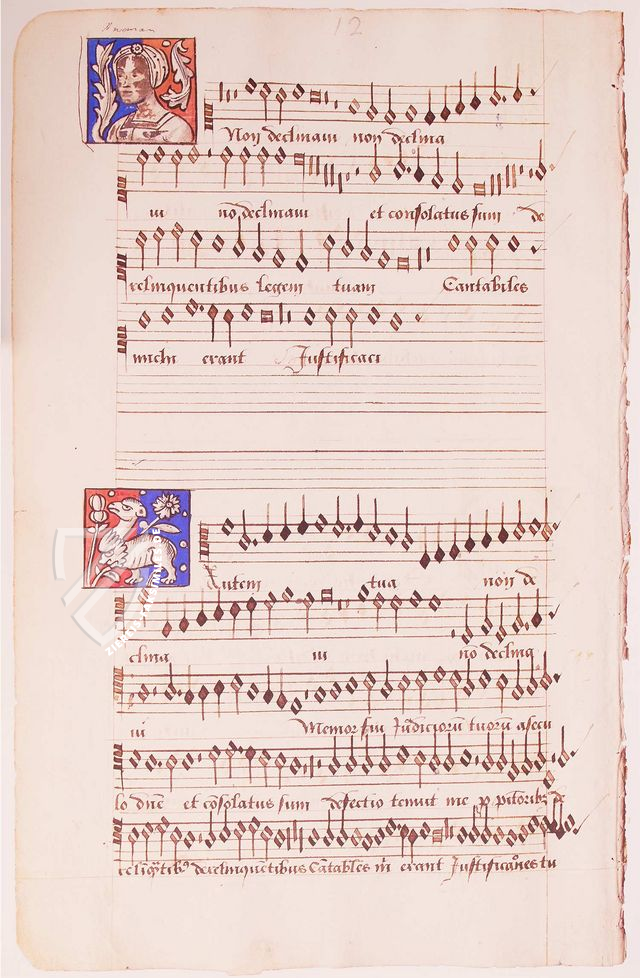 12
Non declinavi non declina
vi no declinavi et consolatus sum de
relinquentibus legem tuam Cantabiles
michi erant Justificaci
Autem tua non de
clina vi no declina
vi Memor fui Judicioru tuoru asecu
lo dne et cosolatus sum defectio tenuit me p
derelinquentibus Catabiles erant tu